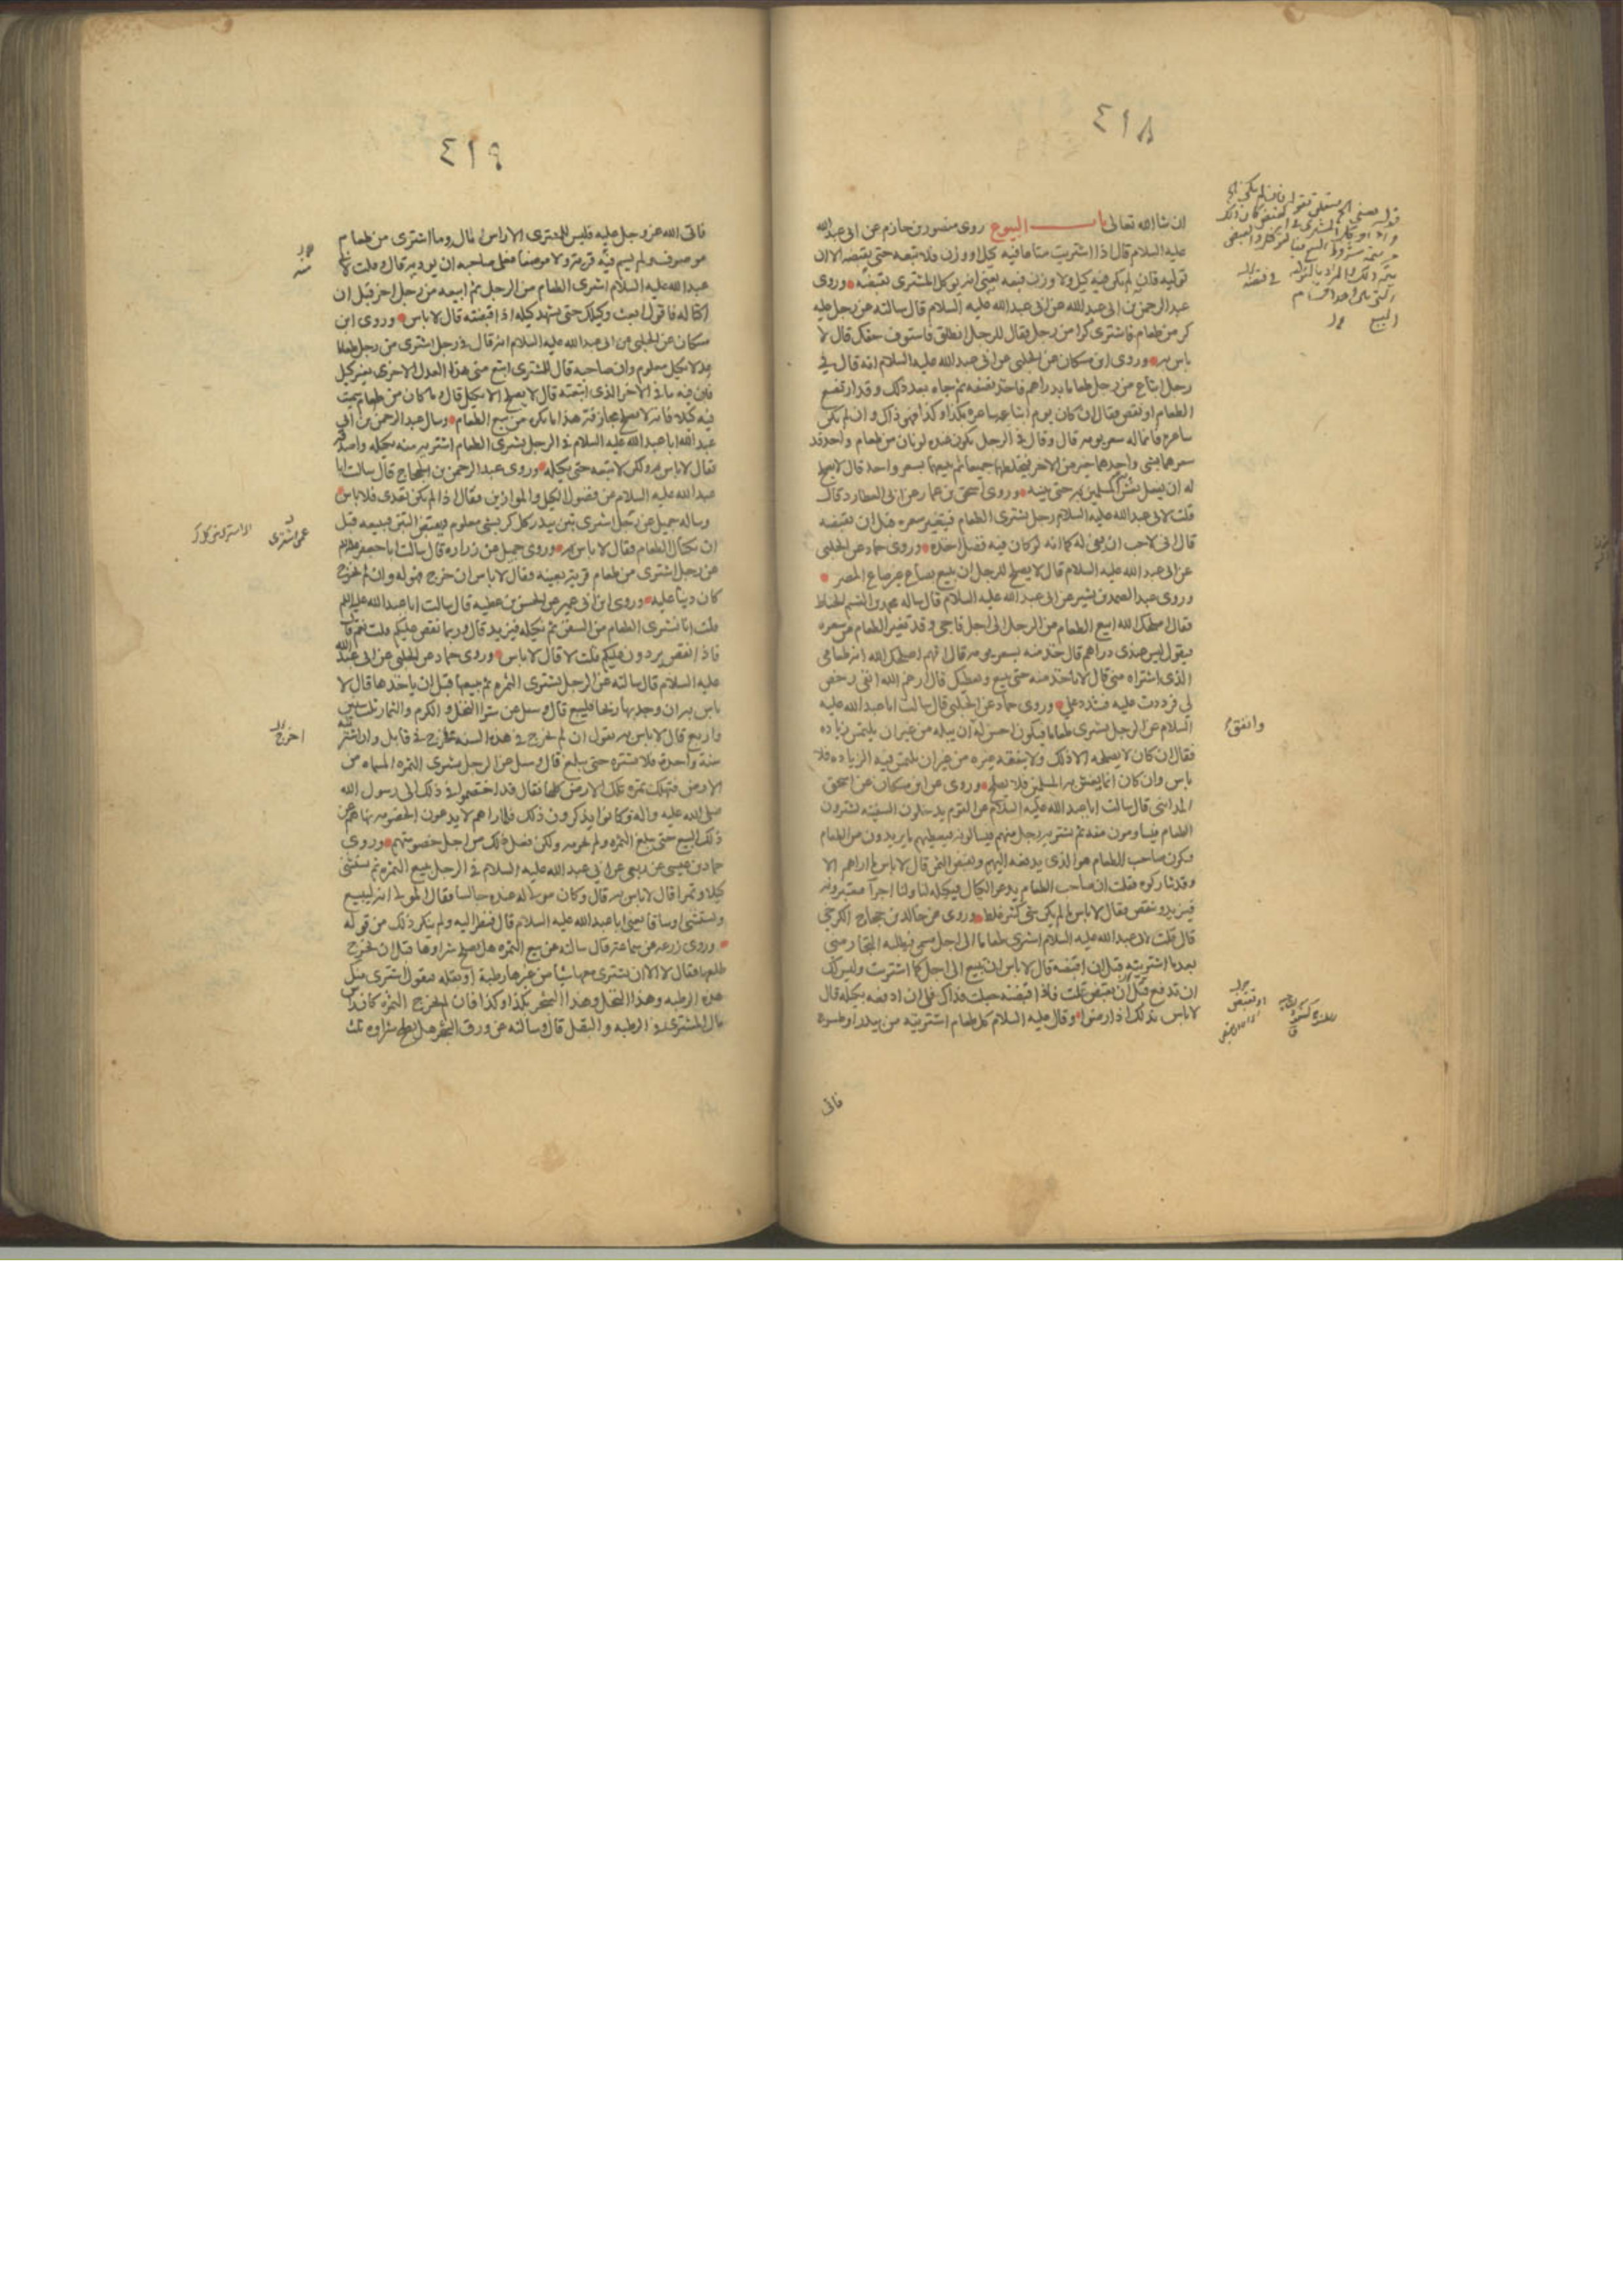 ٤١٨
ان شاء الله تعالى باب البيوع روى منصور بن حازم عن ابى عبد الله
عليه السلام قال اذا اشتريت متاعا فيه كيل او وزن فلا تبعه حتى تقبضه الا ان
توليه فان لم يكن فيه كيل ولا وزن فبعه يعنى انه يوكل المشترى بقبضه وروى
عبد الرحمن بن ابى عبد الله عن ابى عبد الله عليه السلام قال سالته عن رجل عليه
كر من طعام فاشترى كرا من رجل فقال للرجل انطلق فاستوف حقك قال لا
باس به وروى ابن مسكان عن الحلبى عن ابى عبد الله عليه السلام انه قال فى
رجل ابتاع من رجل طعاما بدراهم فاخذ نصفه ثم جاء بعد ذلك وقد ارتفع
الطعام او نقص فقال ان كان يوم ابتاعه ساعره بكذا وكذا فهو ذاك وان لم يكن
ساعره فانما له سعر يومه قال وقال فى الرجل يكون عنده لونان من طعام واحد قد
سعرهما بشئ واحدهما خير من الاخر فيخلطهما جميعا ثم يبيعهما بسعر واحد قال لا يصلح
له ان يفعل يغش المسلمين به حتى يبينه وروى اسحق بن عمار عن ابى العطارد قال
قلت لابى عبد الله عليه السلام رجل يشترى الطعام فيتغير سعره قبل ان تقبضه
قال انى لاحب ان يفى له كما انه لو كان فيه فضل اخذه وروى حماد عن الحلبى
عن ابى عبد الله عليه السلام قال لا يصلح للرجل ان يبيع بصاع غير صاع المصر
وروى عبد الصمد بن بشير عن ابى عبد الله عليه السلام قال ساله محمد بن القسم الحناط
فقال اصلحك الله ابيع الطعام من الرجل الى اجل فاجئ وقد تغير الطعام من سعره
فيقول ليس عندى دراهم قال خذ منه بسعر يومه قال افهم اصلحك الله انه طعامى
الذى اشتراه منى قال لا تاخذ منه حتى يبيع ويعطيك قال ارغم الله انفى رخص
لى فرددت عليه فشدد على وروى حماد عن الحلبى قال سالت ابا عبد الله عليه
السلام عن الرجل يشترى طعاما فيكون احسن له ان يبله من غير ان يلتمس زياده
فقال ان كان لا يصلحه الا ذلك ولا ينفقه غيره من غير ان يلتمس فيه الزياده فلا
باس وان كان انما يغش به المسلمين فلا يصلح وروى عن ابن مسكان عن اسحق
المداينى قال سالت ابا عبد الله عليه السلام عن القوم يدخلون السفينه يشترون
الطعام فيساومون منه ثم يشتريه رجل منهم فيسالونه فيعطيهم ما يريدون من الطعام
فيكون صاحب الطعام هو الذى يدفعه اليهم ويقبض الثمن قال لا باس ما اراهم الا
وقد شاركوه فقلت ان صاحب الطعام يدعو الكيال فيكيله لنا ولنا اجراء فيعتبرونه
فيزيد وينقص فقال لا باس ما لم يكن شئ كثير غلط وروى عن خالد بن حجاج الكرخى
قال قلت لابى عبد الله عليه السلام اشترى طعاما الى اجل مسمى فيطلبه التجار منى
بعد ما اشتريته قبل ان اقبضه قال لا باس ان تبيع الى اجل كما اشتريت وليس لك
ان تدفع قبل ان تقبض قلت فاذا قبضته جعلت فداك فلى ان ادفعه بكيله قال
لا باس بذلك اذا رضوا وقال عليه السلام كل طعام اشتريته من بيدر او طسوج
فاتى
وانفق
٤١٩
فاتى الله عز وجل عليه فليس للمشترى الا راس المال وما اشترى من طعام
موصوف ولم يسم فيه قريه ولا موضعا فعلى صاحبه ان يوديه قال وقلت
عبد الله عليه السلام اشترى الطعام من الرجل ثم ابيعه من رجل اخر قبل ان
اكتاله فاقول ابعث وكيلك حتى يشهد كيله اذا قبضته قال لا باس وروى ابن
مسكان عن الحلبى عن ابى عبد الله عليه السلام انه قال فى رجل اشترى من رجل طعاما
عدلا بكيل معلوم وان صاحبه قال للمشترى ابتع منى هذا العدل الاخر بغير كيل
فان فيه ما فى الاخر الذى ابتعته قال لا يصلح الا بكيل قال وما كان من طعام سميت
فيه كيلا فانه لا يصلح مجازفة هذا ما يكره من بيع الطعام وسال عبد الرحمن بن ابى
عبد الله ابا عبد الله عليه السلام فى الرجل يشترى الطعام اشتريه منه بكيله واصدقه
فقال لا باس ولكن لا تبعه حتى تكيله وروى عبد الرحمن بن الحجاج قال سالت ابا
عبد الله عليه السلام عن فضول الكيل والموازين فقال اذا لم يكن تعدى فلا باس
وساله جميل عن رجل اشترى تبن بيدر كل كر بشئ معلوم فيقبض التبن فيبيعه قبل
ان يكتال الطعام فقال لا باس به وروى جميل عن زراره قال سالت ابا جعفر عليه السلام
عن رجل اشترى من طعام قرية بعينه فقال لا باس ان خرج فهو له وان لم يخرج
كان دينا عليه وروى ابن ابى عمير عن الحسن بن عطيه قال سالت ابا عبد الله عليه السلام
قلت انا نشترى الطعام من السفن ثم نكيله فيزيد قال وربما نقص عليكم قلت نعم قال
فاذا نقص يردون عليكم قلت لا قال لا باس وروى حماد عن الحلبى عن ابى عبد الله
عليه السلام قال سالته عن الرجل يشترى الثمره ثم يبيعها قبل ان ياخذها قال لا
باس به ان وجد بها ربحا فليبع قال وسئل عن شرا النخل والكرم والثمار ثلث سنين
واربع قال لا باس به يقول ان لم يخرج فى هذه السنه يخرج فى قابل وان اشتريته
سنة واحدة فلا تشتره حتى يبلغ قال وسئل عن الرجل يشترى الثمره المسماه من
الارض فتهلك ثمره تلك الارض كلها فقال قد اختصموا فى ذلك الى رسول الله
صلى الله عليه واله وكانوا يذكرون ذلك فلما راهم لا يدعون الخصومه نهاهم عن
ذلك البيع حتى يبلغ الثمره ولم يحرمه ولكن فعل ذلك من اجل خصومتهم وروى
حماد بن عيسى عن ربعى عن ابى عبد الله عليه السلام فى الرجل يبيع الثمره ثم يستثنى
كيلا وتمرا قال لا باس به قال وكان مولى له عنده جالسا فقال المولى انه ليبيع
ويستثنى اوساقا يعنى ابا عبد الله عليه السلام قال فنظر اليه ولم ينكر ذلك من قوله
وروى زرعه عن سماعه قال سالته عن بيع الثمره هل يصلح شراوها قبل ان يخرج
طلعها فقال لا الا ان يشترى معها شيئا من غيرها رطبة او بقله فيقول اشترى منك
هذه الرطبه وهذا النخل وهذا الشجر بكذا وكذا فان لم يخرج الثمره كان راس
مال المشترى فى الرطبه والبقل قال وسالته عن ورق الشجر هل يصلح شراوه ثلث